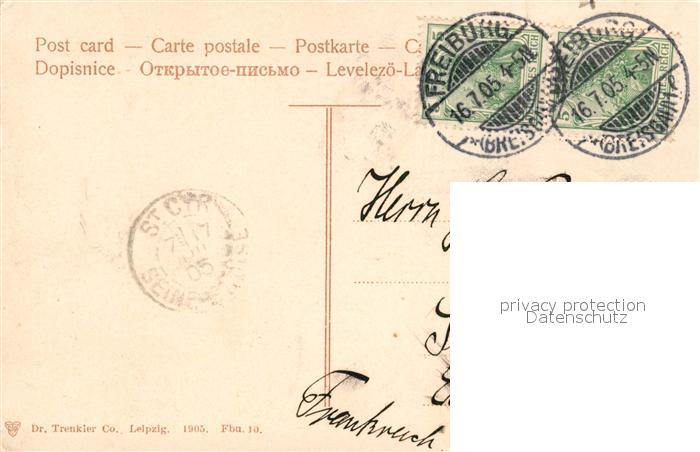 Post card — Carte postale — Postkarte — Ca
Dopisnice — Открытое-письмо — Levelező-La
FREIBURG
16.7.05.4-5N
*(BREISGAU)1
FREIBURG
16.7.05.4-5N
*(BREISGAU)1
5
5
ST CYR
17
05
SEINE
Herrn
privacy protection
Datenschutz
Frankreich
Dr. Trenkler Co., Leipzig. 1905. Fbu. 10.